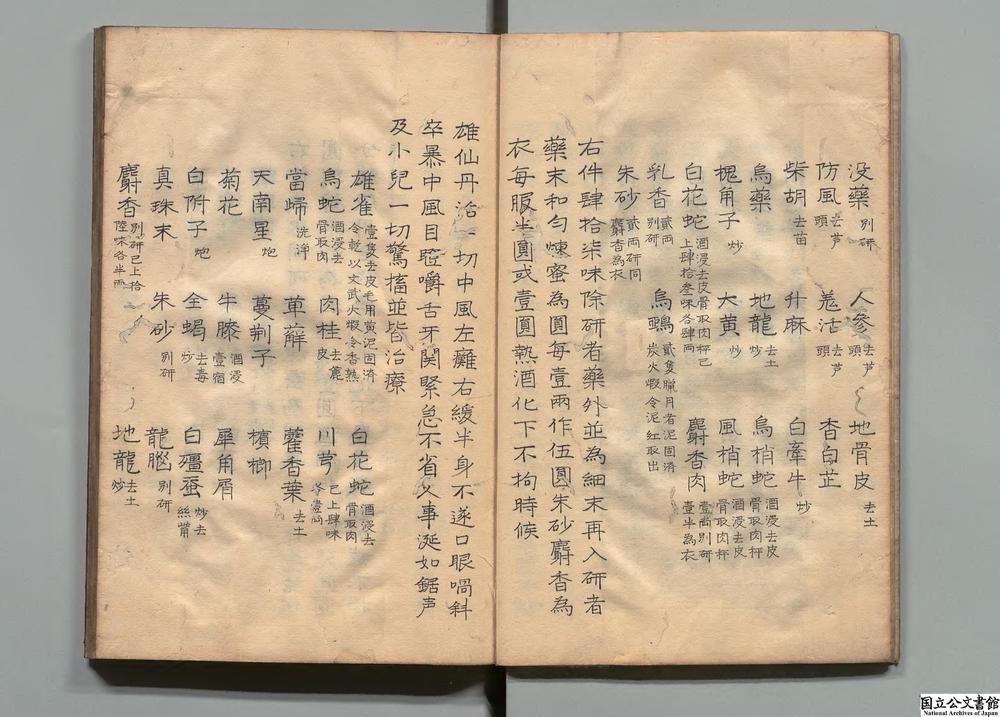 没藥別研　人參去芦頭　地骨皮去土
防風去芦頭　羗活去芦頭　香白芷
柴胡去苗　升麻　白牽牛炒
烏藥　地龍去土炒　烏梢蛇酒浸去皮骨取肉秤
槐角子炒　大黄炒　風梢蛇酒浸去皮骨取肉秤
白花蛇酒浸去皮骨取肉秤已上肆拾叁味各肆両　麝香肉壹両別研壹半為衣
乳香貳両別研　烏鴉貳隻臘月者泥固濟炭火煅令泥紅取出
朱砂貳両研同麝香為衣
右件肆拾柒味除研者藥外並為細末再入研者
藥末和匀煉蜜為圓每壹兩作伍圓朱砂麝香為
衣每服半圓或壹圓熱酒化下不拘時候
雄仙丹治一切中風左癱右緩半身不遂口眼喎斜
卒暴中風目瞪嚼舌牙関緊急不省人事涎如鋸声
及小兒一切驚搐並皆治療
雄雀壹隻去皮毛用黄泥固済令乾以文武火煅令香熟　白花蛇酒浸去骨取肉
烏蛇酒浸去骨取肉　肉桂去麁皮　川芎已上肆味各壹両
當歸洗浄　萆薢　藿香葉去土
天南星炮　蔓荆子　檳榔
菊花　牛膝酒浸壹宿　犀角屑
白附子炮　全蝎去毒炒　白殭蚕炒去絲觜
真珠末　朱砂別研　龍腦別研
麝香別研已上拾陸味各半両　地龍去土炒
国立公文書館
National Archives of Japan